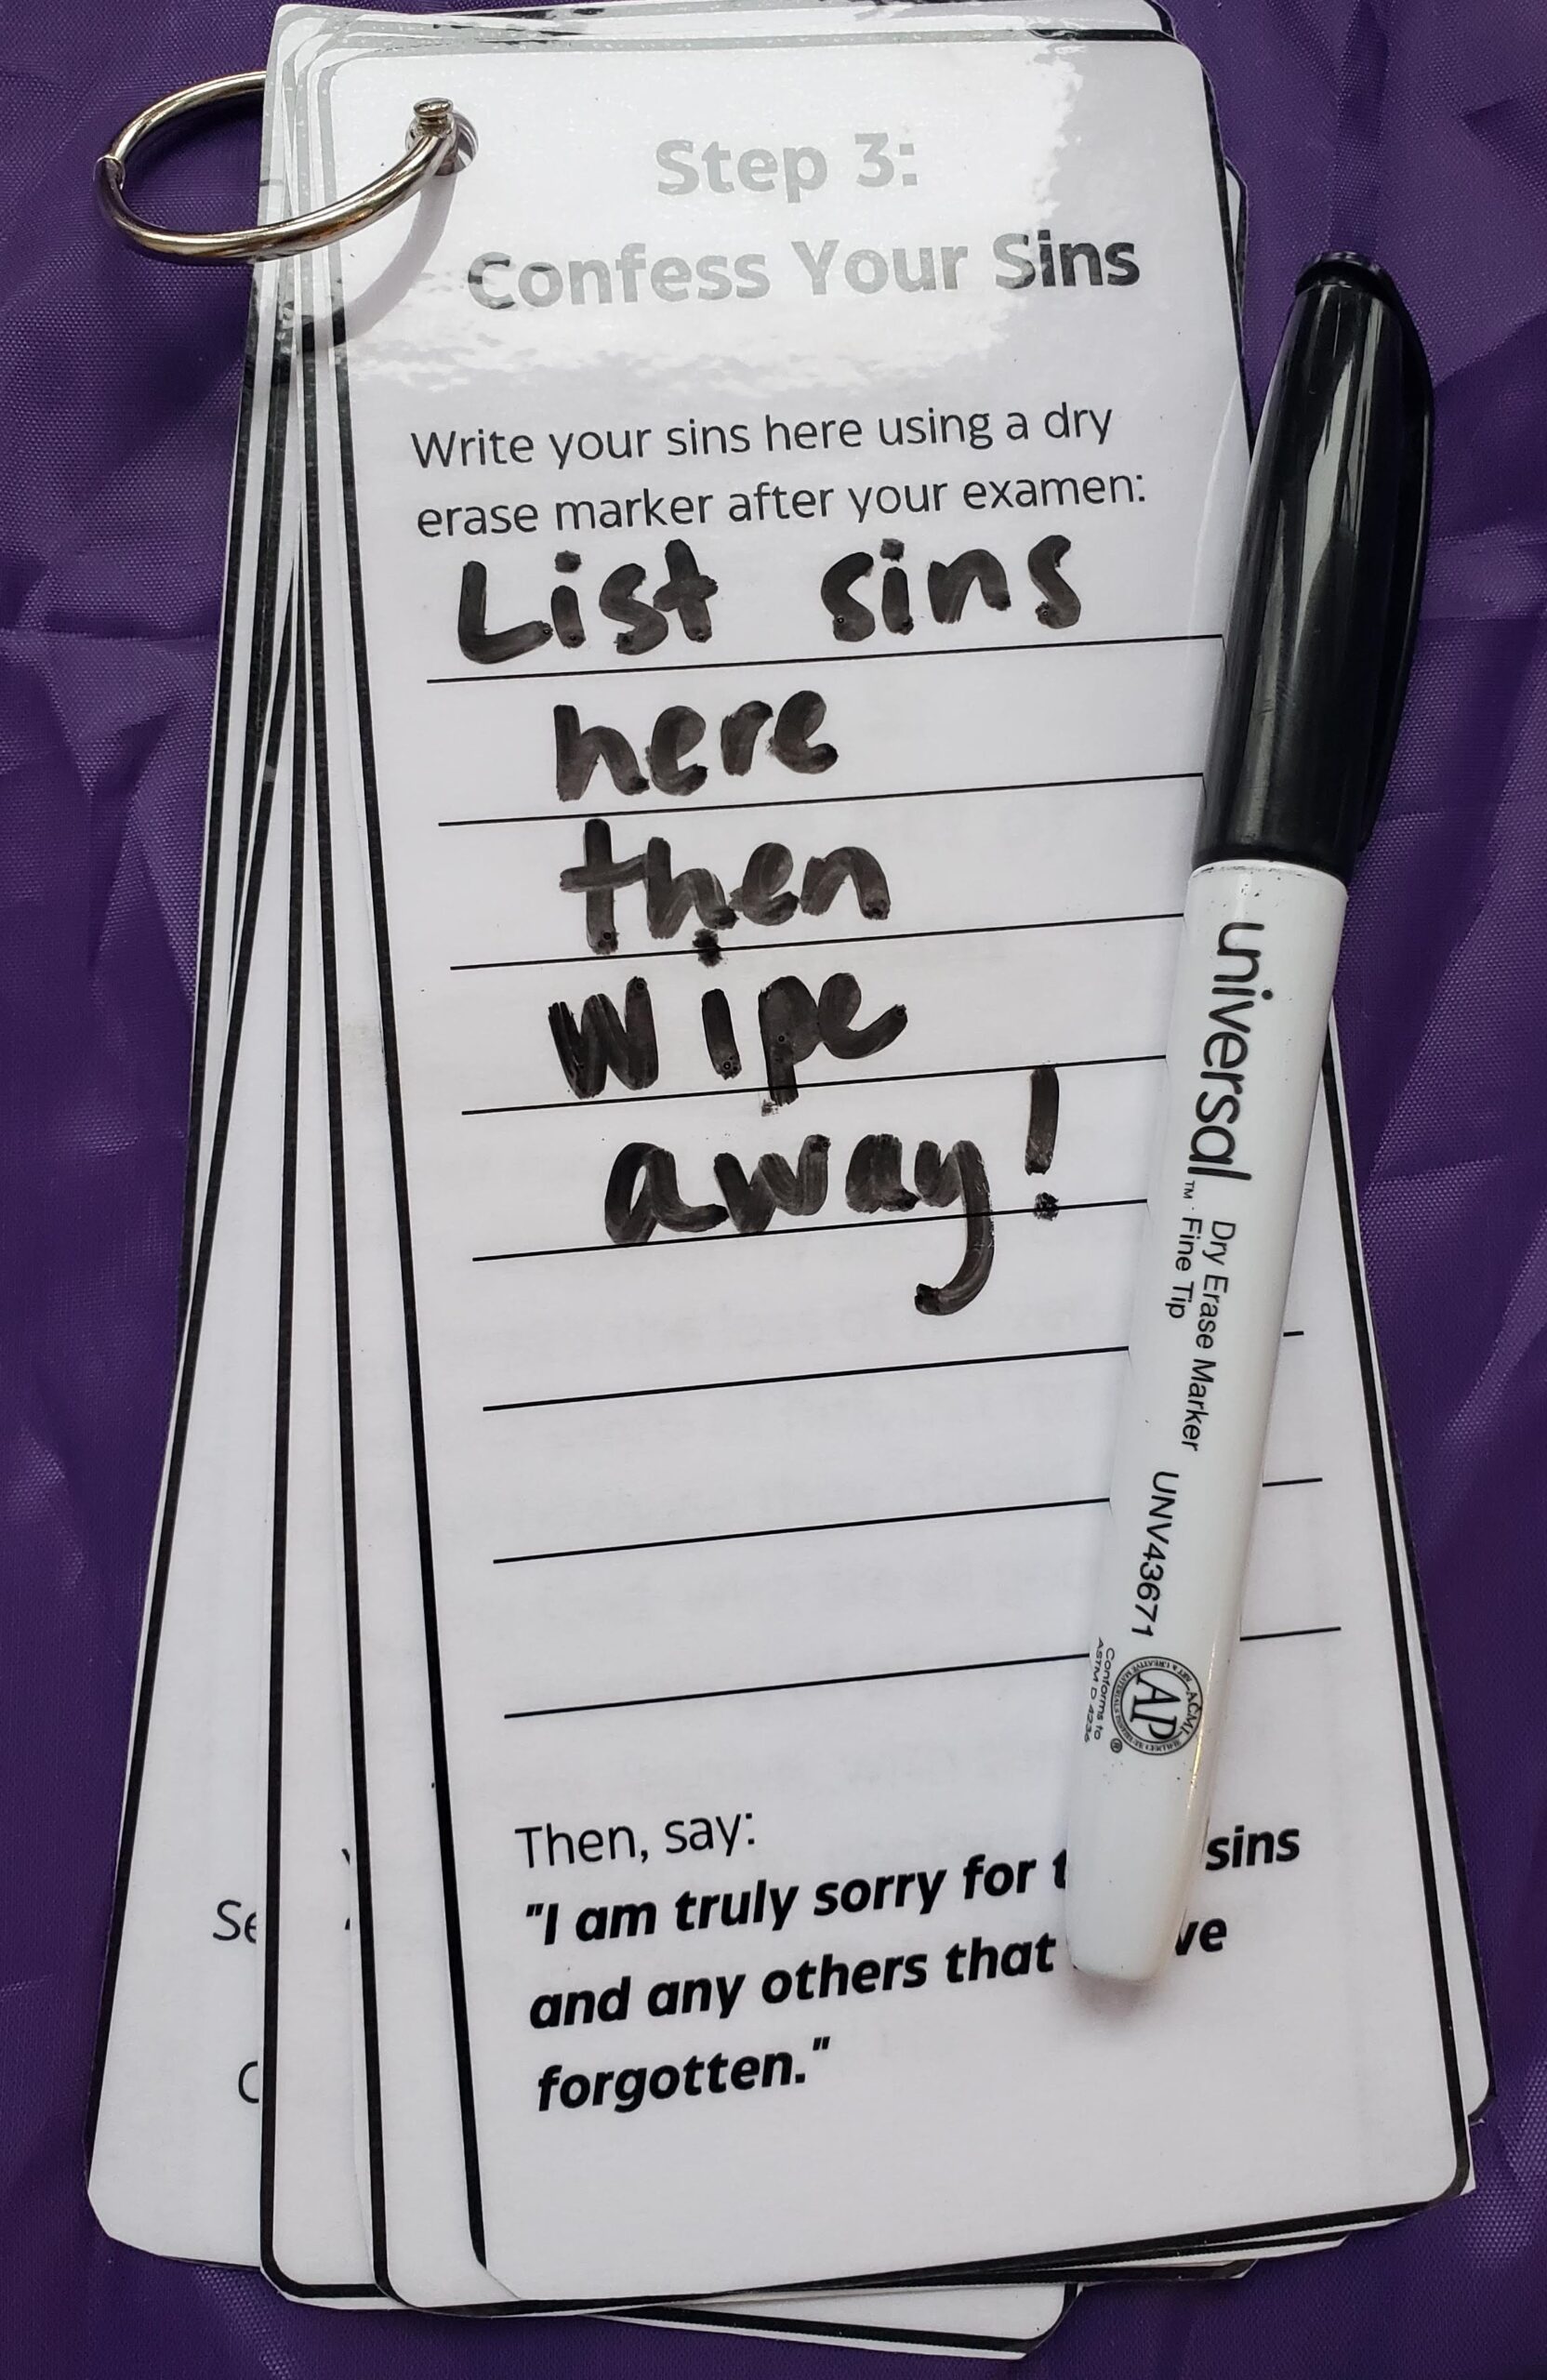 Step 3:
Confess Your Sins
Write your sins here using a dry
erase marker after your examen:
List sins
here
then
wipe
away!
Then, say:
"I am truly sorry for sins
and any others that
forgotten."
universal™
Dry Erase Marker
Fine Tip
UNV43671
ACMI
AP
Conforms to
ASTM D 4236
®